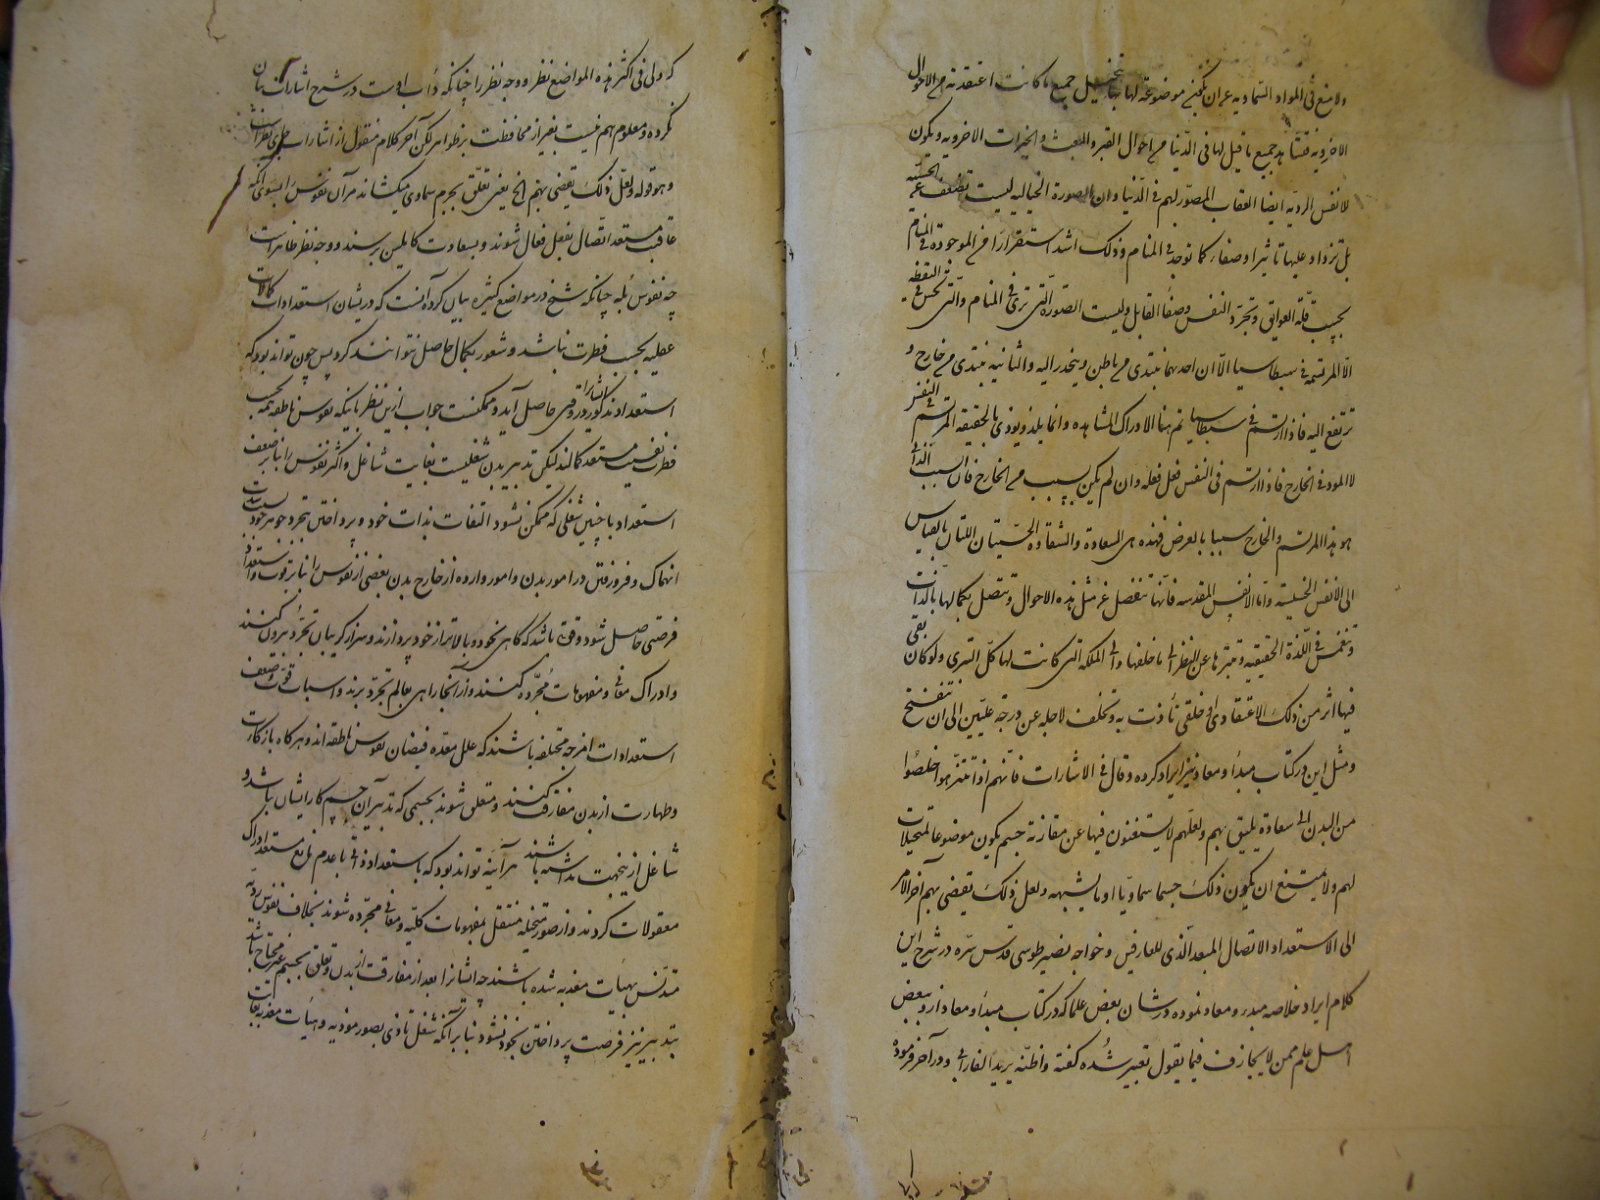 ولا منع فی المواد السماویه عن ان تکون موضوعة لها بها تتخیل جمیع ما کانت اعتقدته من الاحوال
الاخرویه فتشاهد جمیع ما قیل لها فی الدنیا من احوال القبر والبعث والخیرات الاخرویه ویکون
لانفس الردیه ایضا العقاب المصور لهم فی الدنیا وان الصورة الخیالیه لیست تضعف عن الحسیة
بل تزداد علیها تاثیرا وصفاء کما نوجد فی المنام وذلک اشد استقرارا من الموجود فی المنام
بحسب قلة العوایق وتجرد النفس وصفاء القابل ولیست الصورة التی تری فی المنام والتی تحس فی الیقظه
الا المرتسمة فی سطاسیا الا ان احدیهما تبتدی من باطن وینحدر الیه والثانیه تبتدی من خارج و
ترتفع الیه فاذا ارتسم فی سطاسیا تم هنا الادراک المشاهده وانما یلذ ویوذی بالحقیقه المرتسم فی النفس
لا الموجود فی الخارج فاذا ارتسم فی النفس فعل فعله وان لم یکن بسبب من الخارج فان السبب الذاتی
هو هذا المرتسم والخارج سببا بالعرض فهذه هی السعادة والشقاوه الحسیتان اللتان بالقیاس
الی الانفس الخسیسة واما الانفس المقدسه فانها تنفصل عن مثل هذه الاحوال وتتصل بکمالها بالذات
وتنغمس فی اللذة الحقیقیه وتتبرا عن النظر الی ما خلفها والی الملکة التی کانت لها کل التبری ولو کان بقی
فیها اثر من ذلک الاعتقادی او خلقی تاذت به وتخلف لاجله عن درجه علیین الی ان تنفسخ
ومثل این در کتاب مبدأ و معاد نیز ایراد کرده و قال فی الاشارات فانهم اذا تنزهوا خلصوا
من البدن الی سعادة یلیق بهم ولعلهم لا یستغنون فیها عن مقارنة جسم یکون موضوعا لتخیلات
لهم ولا یمتنع ان یکون ذلک جسما سماویا او ما یشبهه ولعل ذلک یفضی بهم آخر الامر
الی الاستعداد الاتصال المسعد الذی للعارفین و خواجه نصیر طوسی قدس سره در شرح این
کلام ایراد خلاصه مبدء و معاد نموده در شان بعض علما که در کتاب مبدأ و معاد از و ببعض
اهل علم ممن لا یجازف فیما یقول تعبیر شده گفته و اظنه یرید الفارابی و در آخر فرموده
که ولی فی اکثر هذه المواضع نظر و وجه نظر را چنانکه داب اوست در شرح اشارات بیان
نکرده و معلوم هم نیست بغیر از محافظت بر ظواهر لکن آخر کلام منقول از اشارات محل نظر است
و هو قوله و لعل ذلک یفضی بهم الخ یعنی تعلق بجرم سماوی میکشاند مر آن نفوس را بسوی آنکه
عاقبت مستعد اتصال بعقل فعال شوند و بسعادت کاملین برسند و وجه نظر ظاهر است
چه نفوس بله چنانکه شیخ در مواضع کثیره بیان کرده آنست که در ایشان استعدادات کمالات
عقلیه بحسب فطرت نباشد و شعور بکمال حاصل نتوانند کرد پس چون تواند بود که
استعداد مذکور در وقتی ایشانرا حاصل آید و ممکنست جواب ازین نظر باینکه نفوس ناطقه همه بحسب
فطرت نفسیت مستعد کمالند لیکن تدبیر بدن شغلیست بغایت شاغل و اکثر نفوس را بنا بر ضعف
استعداد با چنین شغلی که ممکن نشود التفات بذات خود و پرداختن بتجرد جوهر خود بسبب شدت
انهماک و فرو رفتن در امور بدن و امور وارده از خارج بدن بعضی از نفوس را بنا بر قوت استعداد
فرصتی حاصل شود وقتی باشد که گاهی بخود و بالاتر از خود پردازند و سر از گریبان تجرد بیرون کنند
و ادراک معانی و مفهومات مجرده کنند و از آنجا راهی بعالم تجرد برند و اسباب قوت و ضعف
استعدادات امزجه مختلفه باشند که علل معده فیضان نفوس ناطقه اند و هرگاه با زکات
و طهارت از بدن مفارقت کنند و متعلق شوند بجسمی که تدبیر آن جسم کار ایشان باشد و
شاغل ازینجهت نداشته باشند هر آینه تواند بود که باستعداد ذاتی با عدم مانع مستعد ادراک
معقولات گردند و از صور متخیله منتقل بمفهومات کلیه و معانی مجرده شوند بخلاف نفوس ردیه
متدنس بهیأت معذبه شده باشند چه ایشانرا بعد از مفارقت از بدن و تعلق بجسم غیر محتاج باشد
بتدبیر نیز فرصت پرداختن بخود نشود بنا بر آنکه شغل تاذی بصور موذیه و هیآت معذبه بغایت